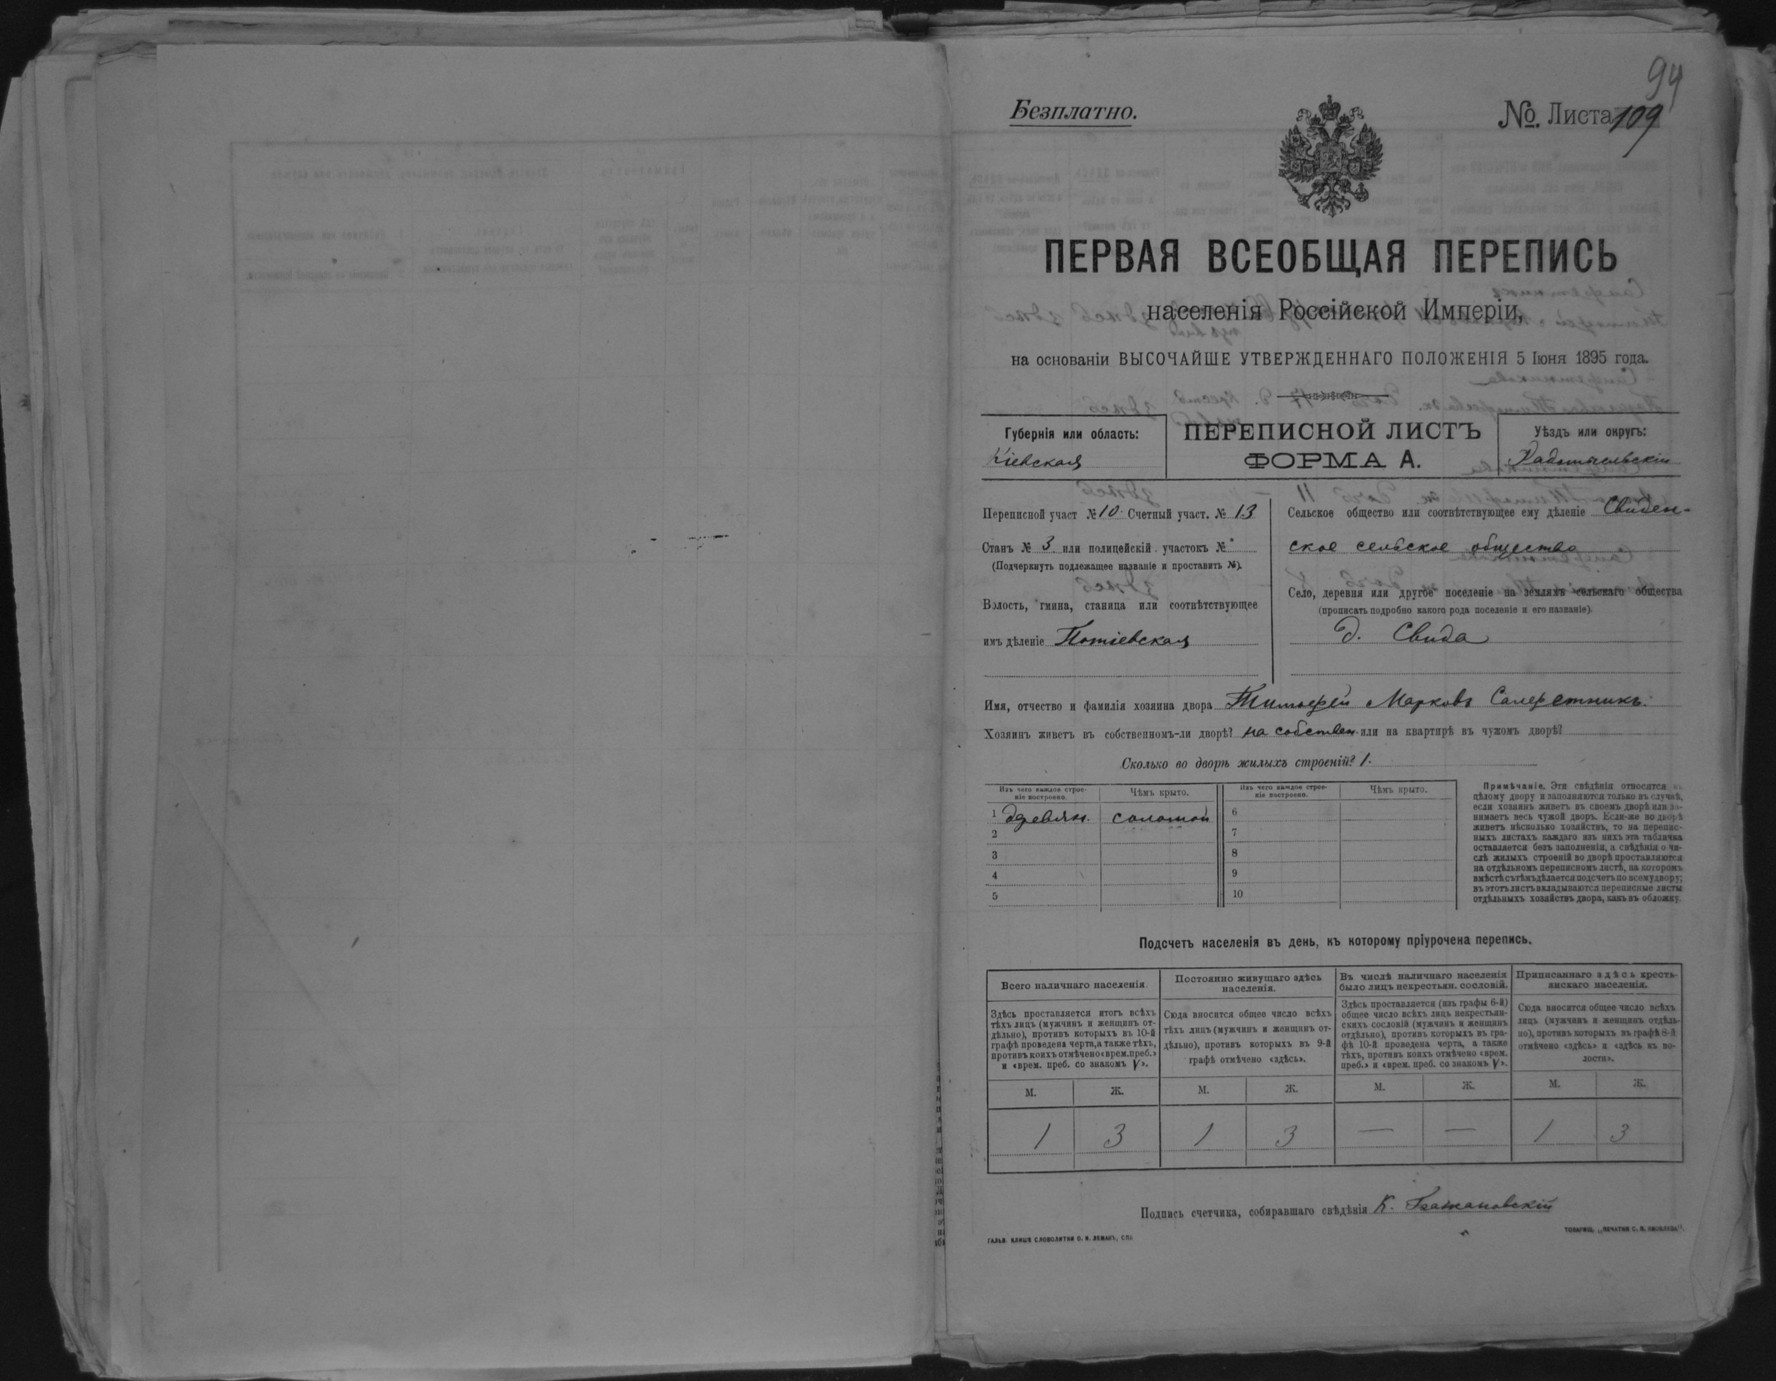 94
Безплатно.
№. Листа 109
ПЕРВАЯ ВСЕОБЩАЯ ПЕРЕПИСЬ
населенія Россійской Имперіи,
на основаніи ВЫСОЧАЙШЕ УТВЕРЖДЕННАГО ПОЛОЖЕНІЯ 5 Іюня 1895 года.
Губернія или область:
Кіевская
ПЕРЕПИСНОЙ ЛИСТЪ
ФОРМА А.
Уѣздъ или округъ:
Радомысльскій
Переписной участ №10 Счетный участ. № 13
Станъ № 3 или полицейскій участокъ №
(Подчеркнуть подлежащее названіе и проставить №).
Волость, гмина, станица или соотвѣтствующее
имъ дѣленіе Потіевская
Сельское общество или соотвѣтствующее ему дѣленіе Свиден-
ское сельское общество
Село, деревня или другое поселеніе на земляхъ сельскаго общества
(прописать подробно какого рода поселеніе и его названіе).
д. Свида
Имя, отчество и фамилія хозяина двора Тимофей Марковъ
Хозяинъ живетъ въ собственномъ-ли дворѣ? на собствен. или на квартирѣ въ чужомъ дворѣ?
Сколько во дворѣ жилыхъ строеній? 1.
Изъ чего каждое строе-
ніе построено.
Чѣмъ крыто.
Изъ чего каждое строе-
ніе построено.
Чѣмъ крыто.
1 деревян. соломой
2
3
4
5
6
7
8
9
10
Примѣчаніе. Эти свѣдѣнія относятся къ
цѣлому двору и заполняются только въ случаѣ,
если хозяинъ живетъ въ своемъ дворѣ или за-
нимаетъ весь чужой дворъ. Если-же во дворѣ
живетъ нѣсколько хозяйствъ, то на перепис-
ныхъ листахъ каждаго изъ нихъ эта табличка
оставляется безъ заполненія, а свѣдѣнія о чи-
слѣ жилыхъ строеній во дворѣ проставляются
на отдѣльномъ переписномъ листѣ, на которомъ
вмѣстѣ съ тѣмъ дѣлается подсчетъ по всему двору;
въ этотъ листъ вкладываются переписные листы
отдѣльныхъ хозяйствъ двора, какъ въ обложку.
Подсчетъ населенія въ день, къ которому пріурочена перепись.
Всего наличнаго населенія.
Здѣсь проставляется итогъ всѣхъ
тѣхъ лицъ (мужчинъ и женщинъ от-
дѣльно), противъ которыхъ въ 10-й
графѣ проведена черта, а также тѣхъ,
противъ коихъ отмѣчено «врем. преб.»
и «врем. преб. со знакомъ V».
Постоянно живущаго здѣсь
населенія.
Сюда вносится общее число всѣхъ
тѣхъ лицъ (мужчинъ и женщинъ от-
дѣльно), противъ которыхъ въ 9-й
графѣ отмѣчено «здѣсь».
Въ числѣ наличнаго населенія
было лицъ некрестьян. сословій.
Здѣсь проставляется (изъ графы 6-й)
общее число всѣхъ лицъ некрестьян-
скихъ сословій (мужчинъ и женщинъ
отдѣльно), противъ которыхъ въ гра-
фѣ 10-й проведена черта, а также
тѣхъ, противъ коихъ отмѣчено «врем.
преб.» и «врем. преб. со знакомъ V».
Приписаннаго здѣсь кресть-
янскаго населенія.
Сюда вносится общее число всѣхъ
лицъ (мужчинъ и женщинъ отдѣль-
но), противъ которыхъ въ графѣ 8-й
отмѣчено «здѣсь» и «здѣсь въ во-
лости».
М. Ж. М. Ж. М. Ж. М. Ж.
1 3 1 3 — — 1 3
Подпись счетчика, собиравшаго свѣдѣнія К.
ГАЛЬВ. КЛИШЕ СЛОВОЛИТНИ О. И. ЛЕМАНЪ, СПБ
ТОВАРИЩ. „ПЕЧАТНЯ С. П. ЯКОВЛЕВА“.